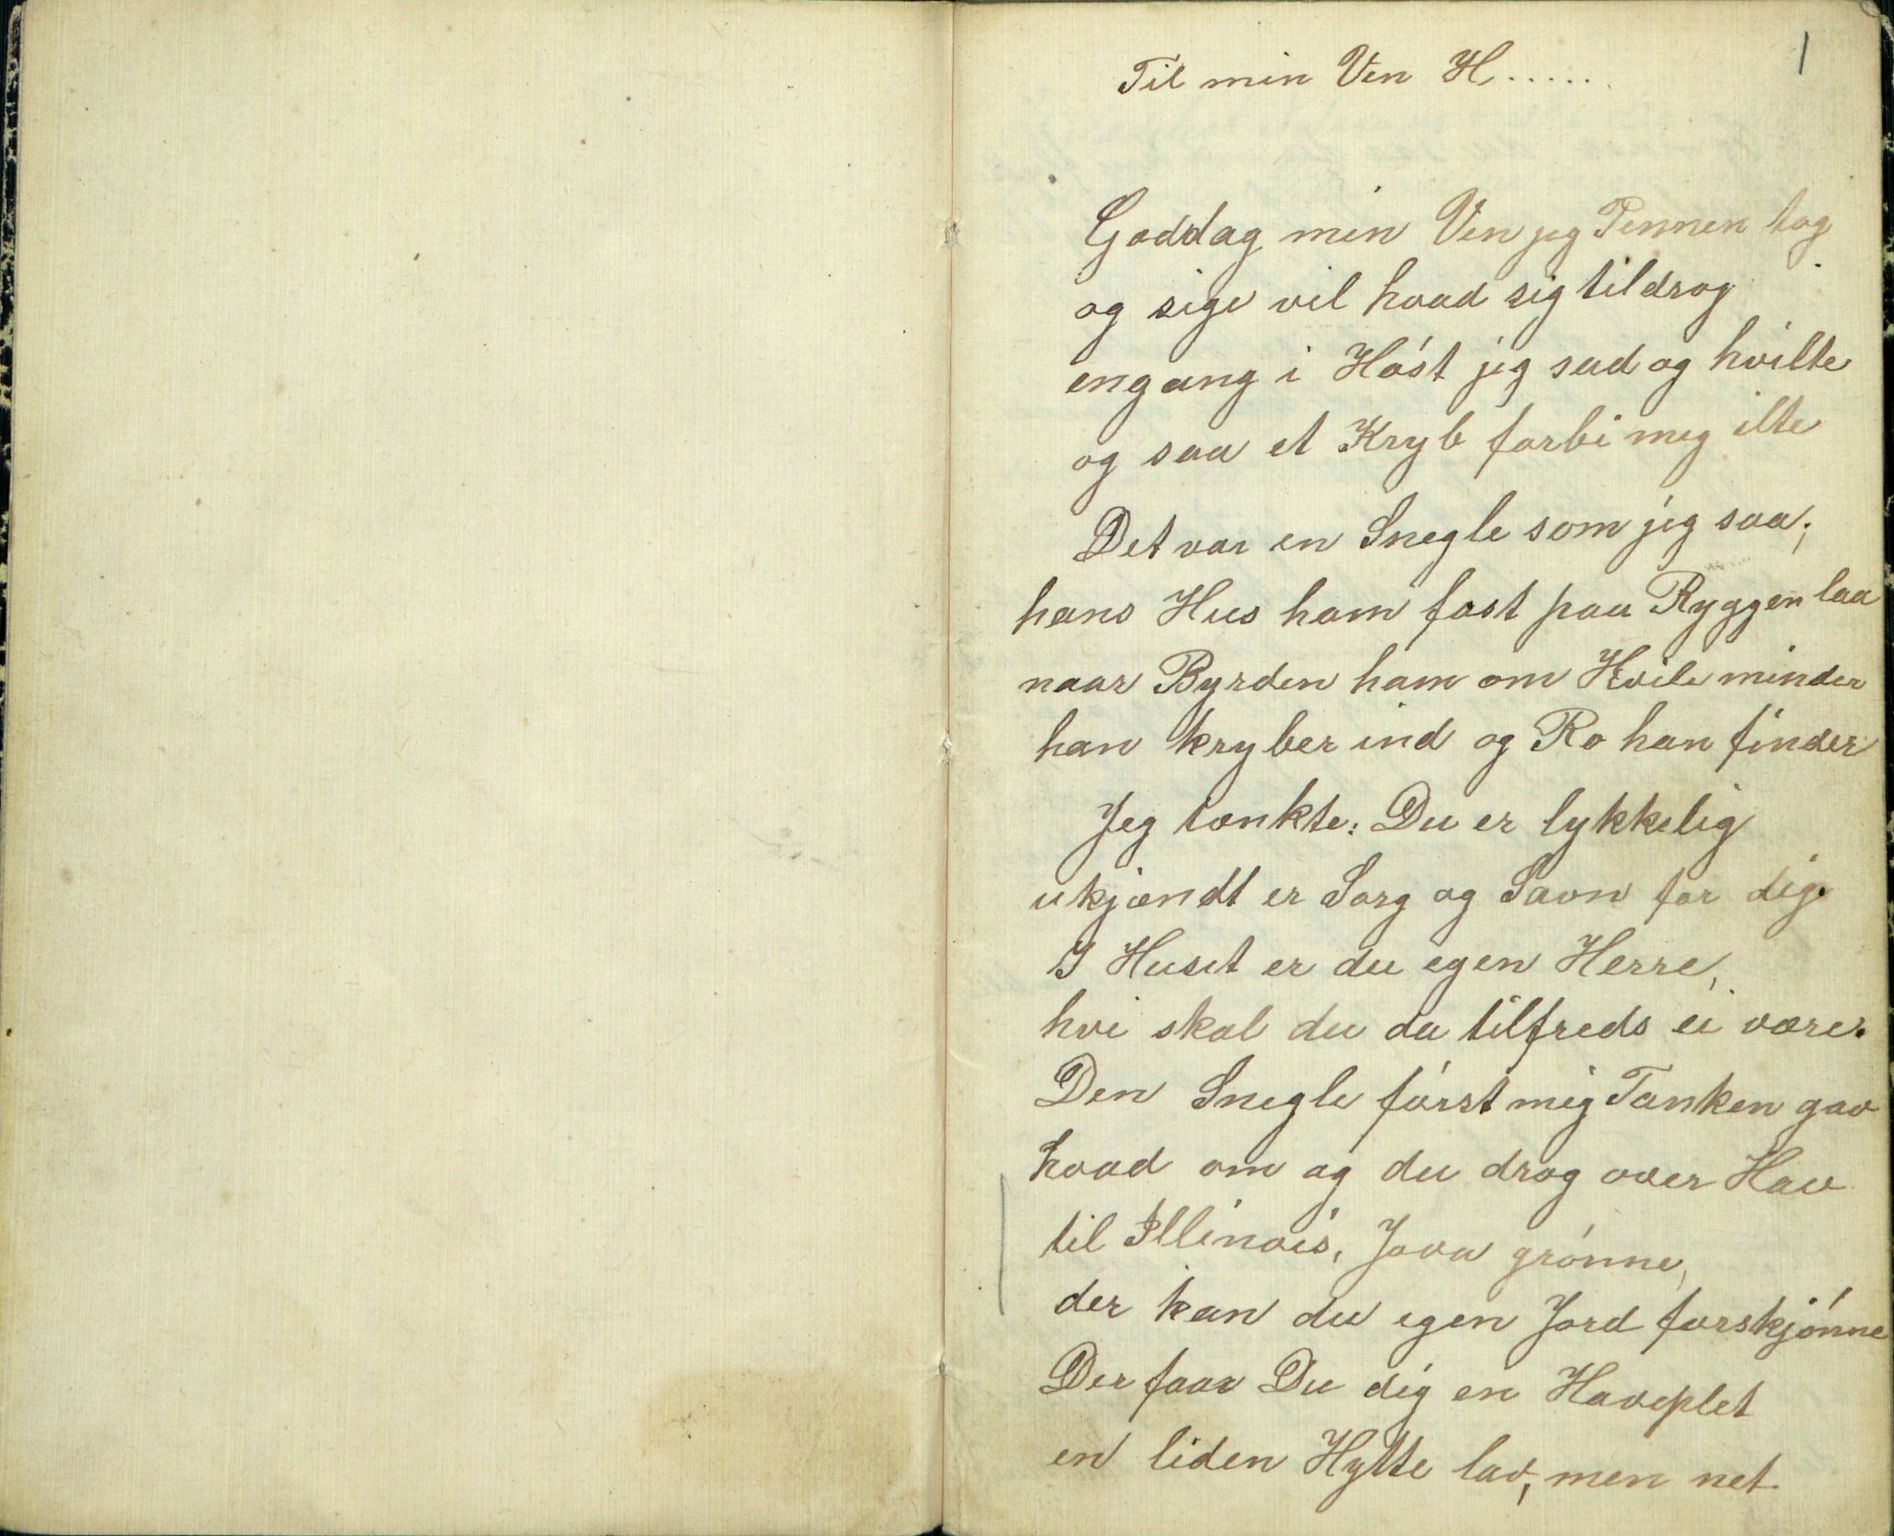 1
Til min Ven H.....
Goddag min Ven jeg Pennen tog
og sige vil hvad sig tildrog
engang i Høst jeg sad og hvilte
og saa et Kryb forbi meg ilte
Det var en Snegle som jeg saa;
hans Hus ham fast paa Ryggen laa
naar Byrden ham om Hvile minder
han kryber ind og Ro han finder
Jeg tænkte: Du er lykkelig
ukjændt er Sorg og Savn for dig.
I Huset er du egen Herre,
hvi skal du da tilfreds ei være.
Den Snegle først mig Tanken gav
hvad om og du drog over Hav
til Illinois, Jova grønne,
der kan du egen Jord forskjønne
Der faar Du dig en Haveplet
en liden Hytte lav, men net.